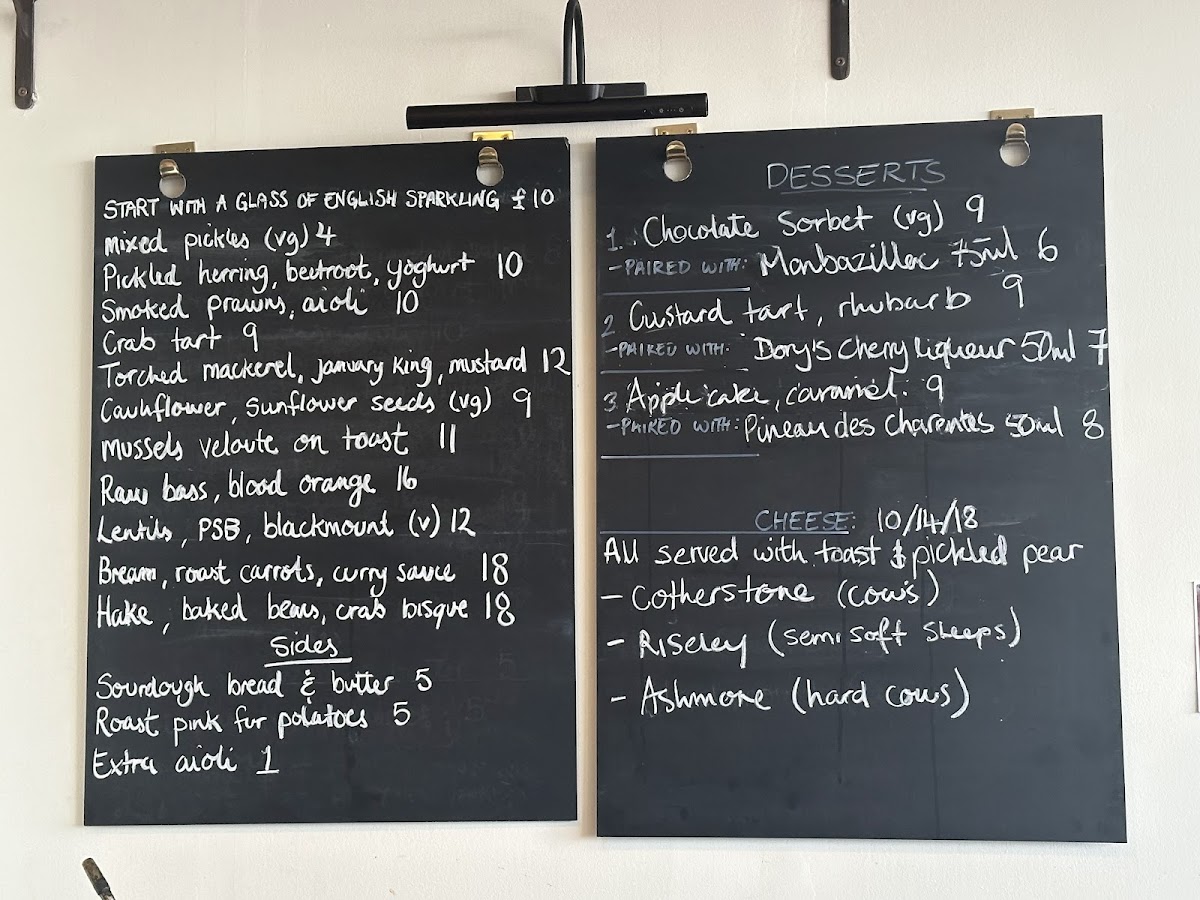 START WITH A GLASS OF ENGLISH SPARKLING £10
Mixed pickles (vg) 4
Pickled herring, beetroot, yoghurt 10
Smoked prawns, aioli 10
Crab tart 9
Torched mackerel, january king, mustard 12
Cauliflower, sunflower seeds (vg) 9
Mussels veloute on toast 11
Raw bass, blood orange 16
Lentils, PSB, blackmount (v) 12
Bream, roast carrots, curry sauce 18
Hake, baked beans, crab bisque 18
Sides
Sourdough bread & butter 5
Roast pink fur potatoes 5
Extra aioli 1
DESSERTS
1. Chocolate Sorbet (vg) 9
- PAIRED WITH: Monbazillac 75ml 6
2 Custard tart, rhubarb 9
- PAIRED WITH: Dory's Cherry liqueur 50ml 7
3 Apple cake, caramel. 9
- PAIRED WITH: Pineau des Charentes 50ml 8
CHEESE: 10/14/18
All served with toast & pickled pear
- Cotherstone (cow's)
- Riseley (semi soft sheeps)
- Ashmore (hard cows)